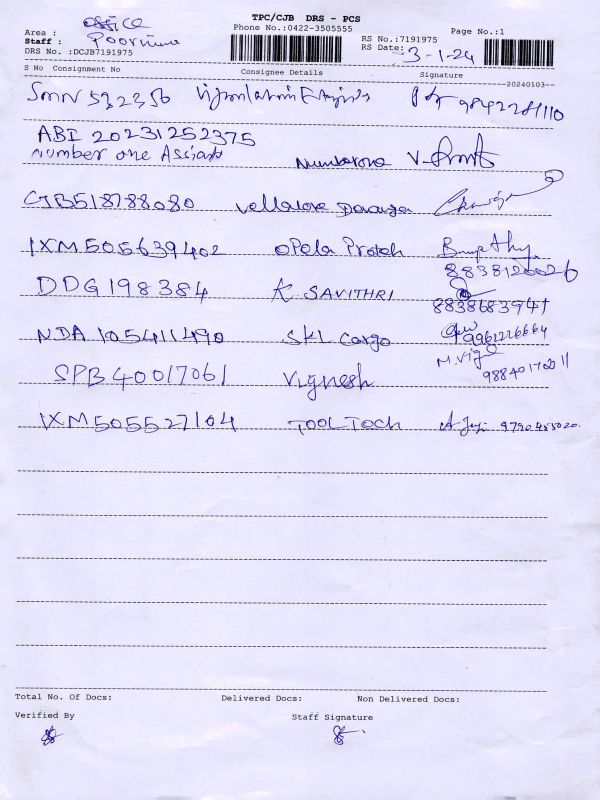 TPC/CJB DRS - PCS
Phone No.:0422-3505555
Page No.:1
Area : office
Staff : Poornima
DRS No. :DCJB7191975
RS No.:7191975
RS Date: 3-1-24
S No Consignment No Consignee Details Signature
20240103
SMN 532356 9842284110
ABI 20231252375
Number one
CJB518788080 Vellalore
IXM505639402 Opela Bupathy
8838120026
DDG198384 K SAVITHRI
8838683941
NDA 105411490 SKL Cargo
SPB40017061 Vignesh M.Vig
IXM505527104 TOOLTech A.
Total No. Of Docs: Delivered Docs: Non Delivered Docs:
Verified By Staff Signature